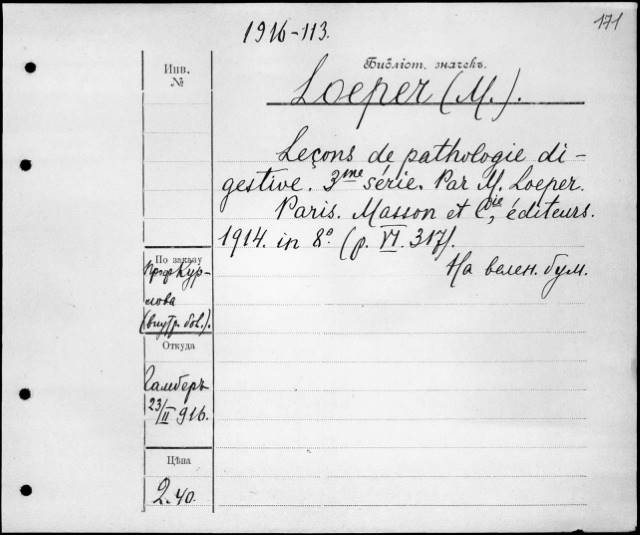 171
1916-113.
Инв. №
Библіот. значекъ.
Loeper (M.).
Leçons de pathologie di-
gestive. 3me série. Par M. Loeper.
Paris. Masson et Cie, éditeurs.
1914. in 8° (p. VI. 317).
На велен. бум.
По заказу
Проф Кур-
лова
(внутр. бол.).
Откуда
Гамберъ
23/II 916.
Цѣна
2.40.